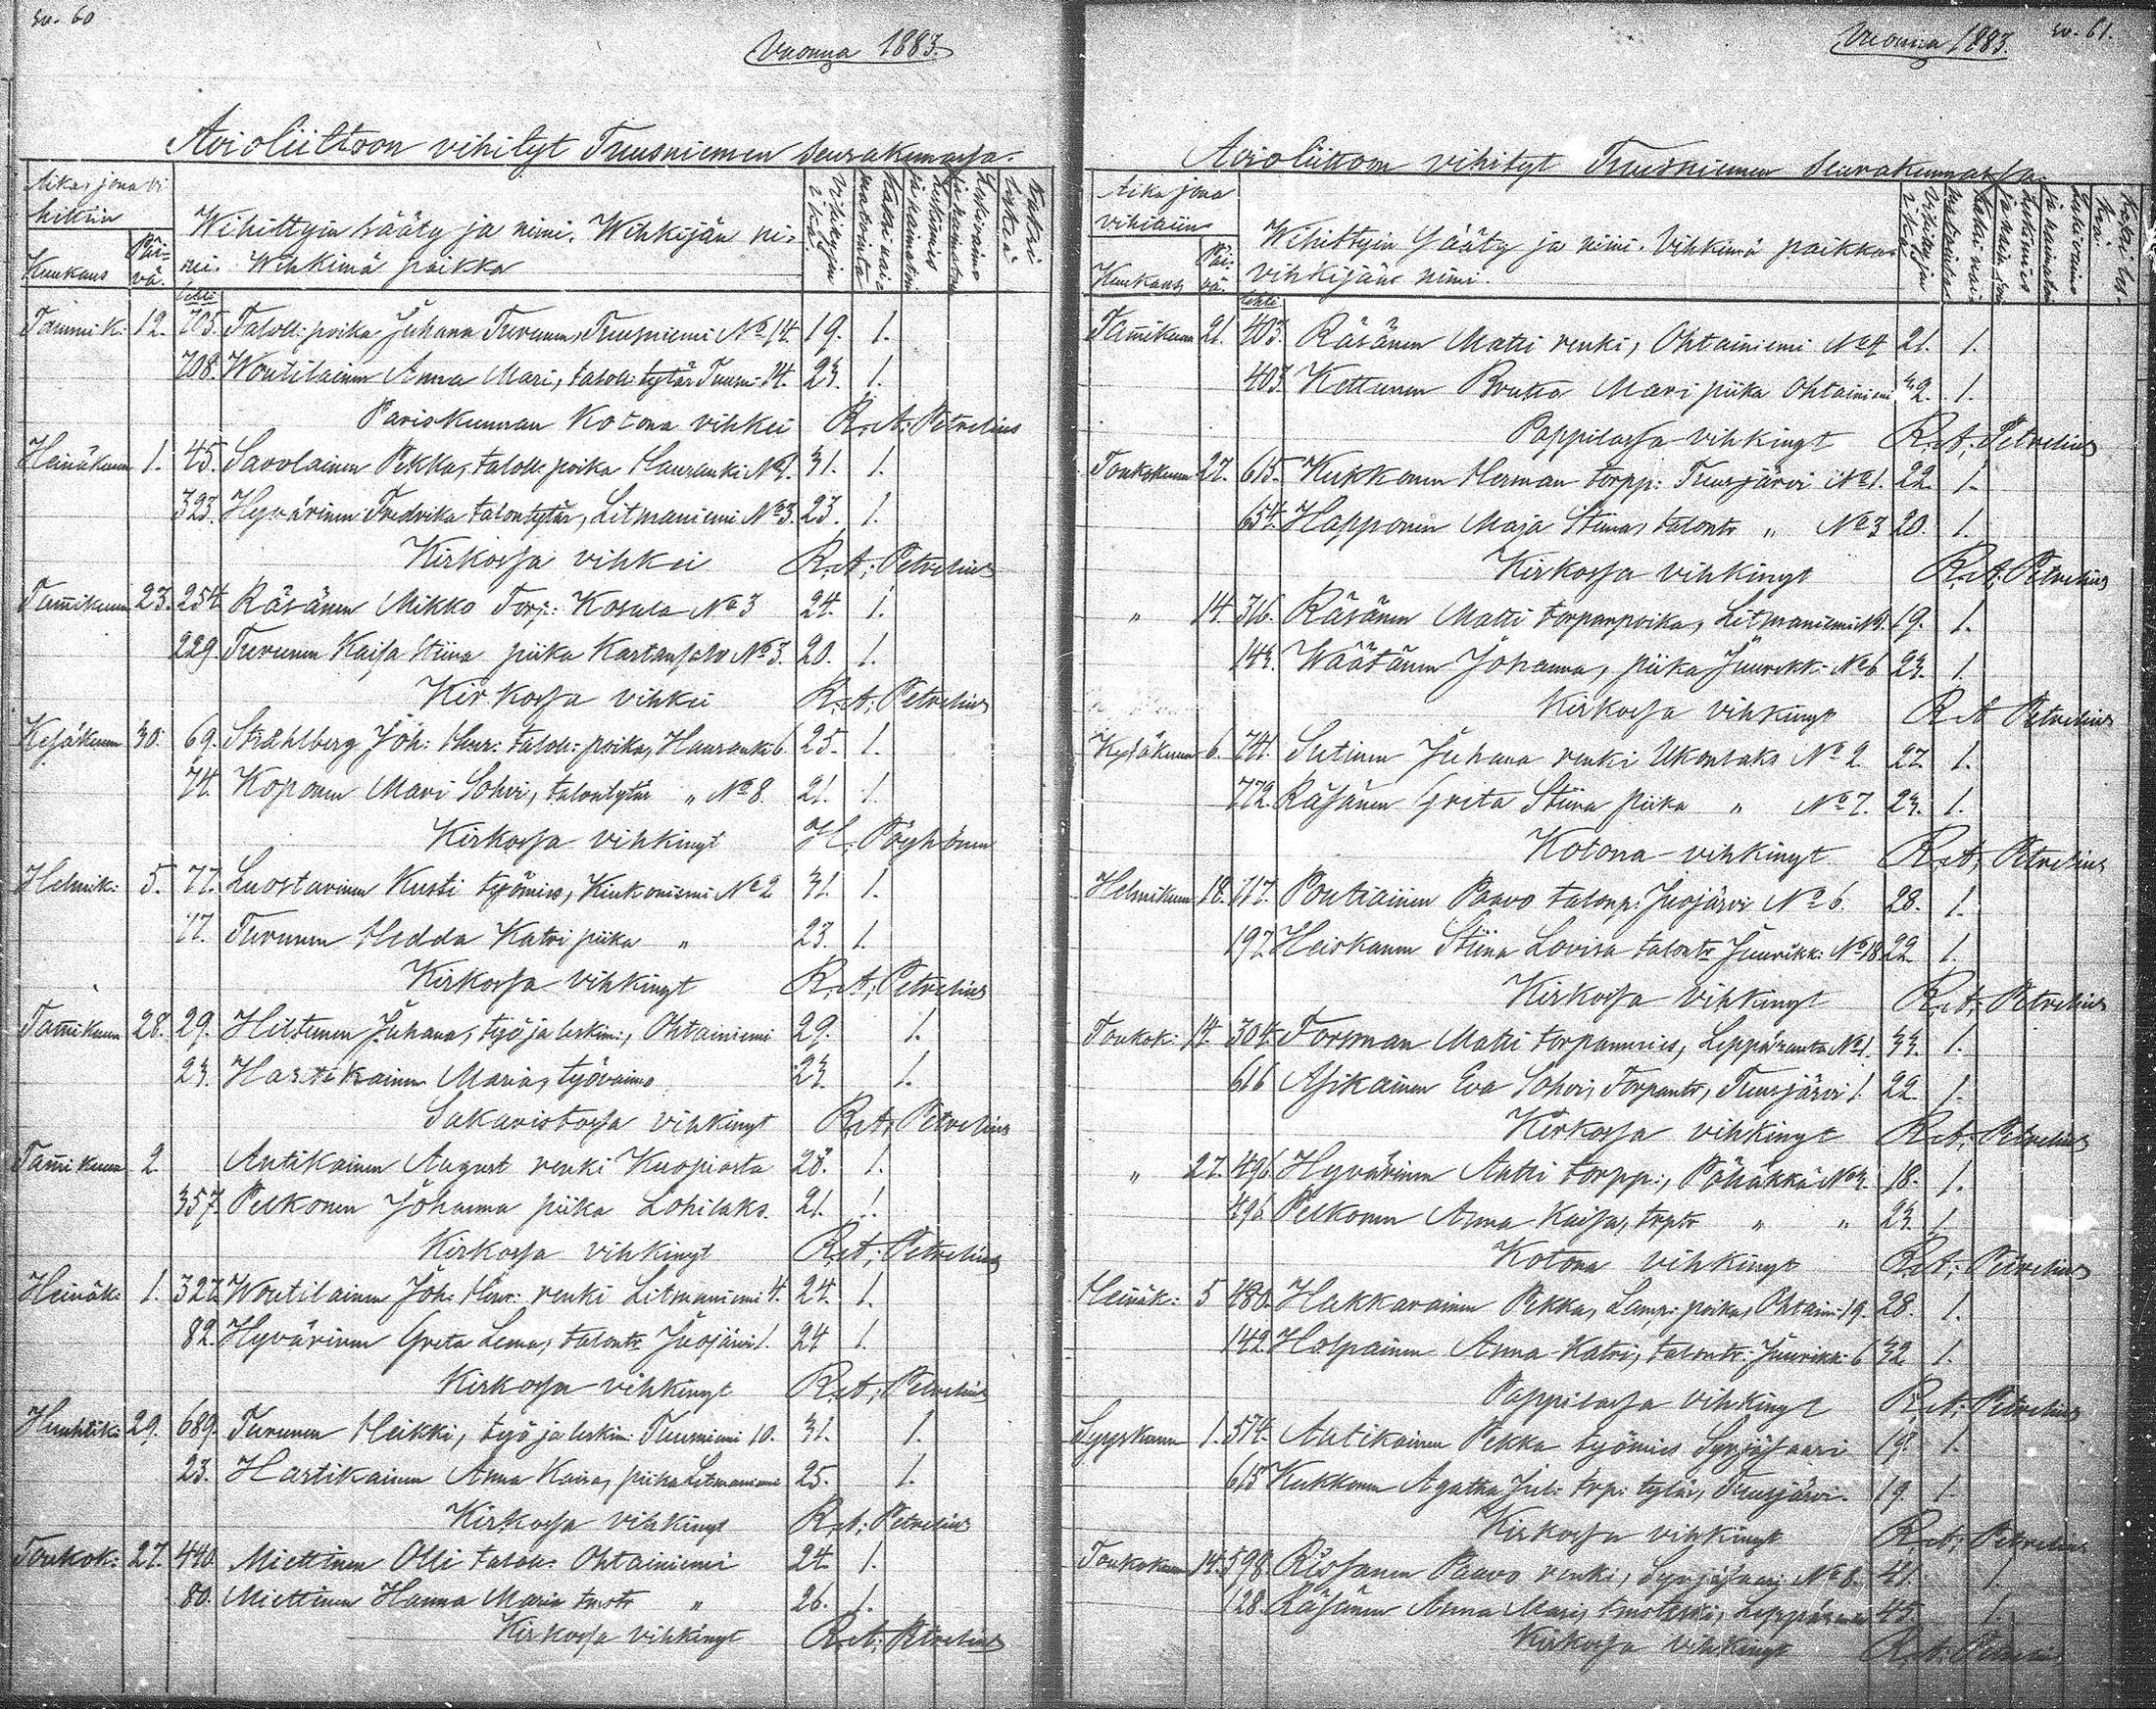 sv. 60
Vuonna 1883.
Avioliittoon vihityt Tuusniemen seurakunnassa.
Aika, jona vi-
hittiin
Kuukaus
Päi-
vä.
Wihittyin sääty ja nimi. Wihkijän ni-
mi. Wihkimä paikka
lehti
Tammik: 12. 705. Taloll: poika Juhana Turunen, Tuusniemi No 14. 19. 1.
708. Woutilainen Anna Mari, taloll: tytär Tuusn: 14. 23. 1.
Pariskunnan kotona vihkei R. A: Petrelius
Heinäkuun 1. 45. Savolainen Pekka, taloll: poika Hauranki No 1. 31. 1.
323. Hyvärinen Fredrika talontytär, Litmaniemi No 3. 23. 1.
Kirkossa vihkei R. A: Petrelius
Tam̅ikuun 23. 254. Räsänen Mikko Torp: Kosula No 3 24. 1.
229. Turunen Kaisa Stiina piika Kartansalo No 3. 20. 1.
Kirkossa vihkei R. A: Petrelius
Kesäkuun 30. 69. Stråhlberg Joh: Henr: taloll: poika, Hauranki 6. 25. 1.
74. Koponen Mari Sohvi, talontytär " No 8. 21. 1.
Kirkossa vihkinyt H. Pöyhönen
Helmik: 5. 77. Luostarinen Kusti työmies, Kiukoniemi No 2 31. 1.
77. Turunen Hedda Katri piika " 23. 1.
Kirkossa vihkinyt R. A; Petrelius
Tam̅ikuun 28. 29. Hiltunen Juhana, työ ja leskim:, Ohtainiemi 29. 1.
23. Hartikainen Maria, työvaimo 23. 1.
Sakaristossa vihkinyt R. A; Petrelius
Tam̅ikuun 2 Antikainen August renki Kuopiosta 28. 1.
357. Pelkonen Johanna piika Lohilaks. 21. 1.
Kirkossa vihkinyt R. A; Petrelius
Heinäk: 1. 327. Woutilainen Joh. Henr: renki Litmaniemi 4. 24. 1.
82. Hyvärinen Greta Leena, talontr Juojärvi 1. 24 1.
Kirkossa vihkinyt R. A; Petrelius
Huhtik: 29. 689. Turunen Heikki, työ ja leskim: Tuusniemi 10. 31. 1.
23. Hartikainen Anna Kaisa, piika Litmaniemi 25. 1.
Kirkossa vihkinyt R. A; Petrelius
Toukok: 27. 440. Miettinen Olli taloll: Ohtainiemi 24. 1.
80. Miettinen Hanna Maria tmstr " 26. 1.
Kirkossa vihkinyt R. A: Petrelius
sv. 61.
Vuonna 1883.
Avioliittoon vihityt Tuusniemen seurakunnassa.
Aika jona
vihittiin
Kuukaus
Päi-
vä.
Wihittyin sääty ja nimi. Vihkimä paikka
vihkijäns nimi.
lehti
Tam̅ikuun 21. 403. Räsänen Matti renki, Ohtainiemi No 4 21. 1.
403. Kettunen Mari piika Ohtainiemi 1.
Pappilassa vihkinyt R. A; Petrelius
Toukokuun 27. 615. Kukkonen Herman torpp: Tuusjärvi No 1. 22. 1.
654. Happonen Maja Stiina, talontr " No 3 20. 1.
Kirkossa vihkinyt R. A; Petrelius
" 14. 316. Räsänen Matti torpanpoika, Litmaniemi 19. 1.
143. Wäätänen Johanna, piika Juurikk: No 6 23. 1.
Kirkossa vihkinyt R. A Petrelius
Kesäkuun 6. 741. Sutinen Juhana renki Ukonlaks No 2. 27. 1.
772. Räsänen Greta Stiina piika " No 7. 23. 1.
Kotona vihkinyt R. A; Petrelius
Helmikuun 18. 117. Poutiainen Paavo talonp: Juojärvi No 6. 28. 1.
197. Heiskanen Stiina Lovisa talontr Juurikk: No 18. 22. 1.
Kirkossa vihkinyt R. A; Petrelius
Toukok: 14. 304. Forsman Matti torpanmies, Leppäranta No 1. 33. 1.
616 Asikainen Eva Sohvi, Torpantr, Tuusjärvi 1. 22. 1.
Kirkossa vihkinyt R. A; Petrelius
" 27. 496. Hyvärinen Antti torpp:, Pöhäkkä No 3. 18. 1.
496 Pelkonen Anna Kaisa, trptr " " 23. 1.
Kotona vihkinyt R. A; Petrelius
Heinäk: 5 480. Hakkarainen Pekka, Lamp: poika, Ohtain: 19. 28. 1.
142. Holpainen Anna Katri, talontr: Juurikk: 6 32 1.
Pappilassa vihkinyt R. A; Petrelius
Syyskuun 1. 574. Antikainen Pekka työmies Syrjäsaari 19. 1.
615 Kukkonen Agatha Jul: trp: tytär, Tuusjärvi. 19. 1.
Kirkossa vihkinyt R. A; Petrelius
Toukokuun 14. 598. Rissanen Paavo renki, Syrjäsaari No 8. 41. 1.
128. Räsänen Anna Mari, Leppäranta 45. 1.
Kirkossa vihkinyt R. A: Petrelius